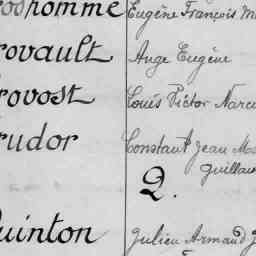 roshomme Eugène François
rovault Ange Eugène
rovost Louis Victor
rudor Constant Jean
Guillau
Q.
uinton Julien Armand J